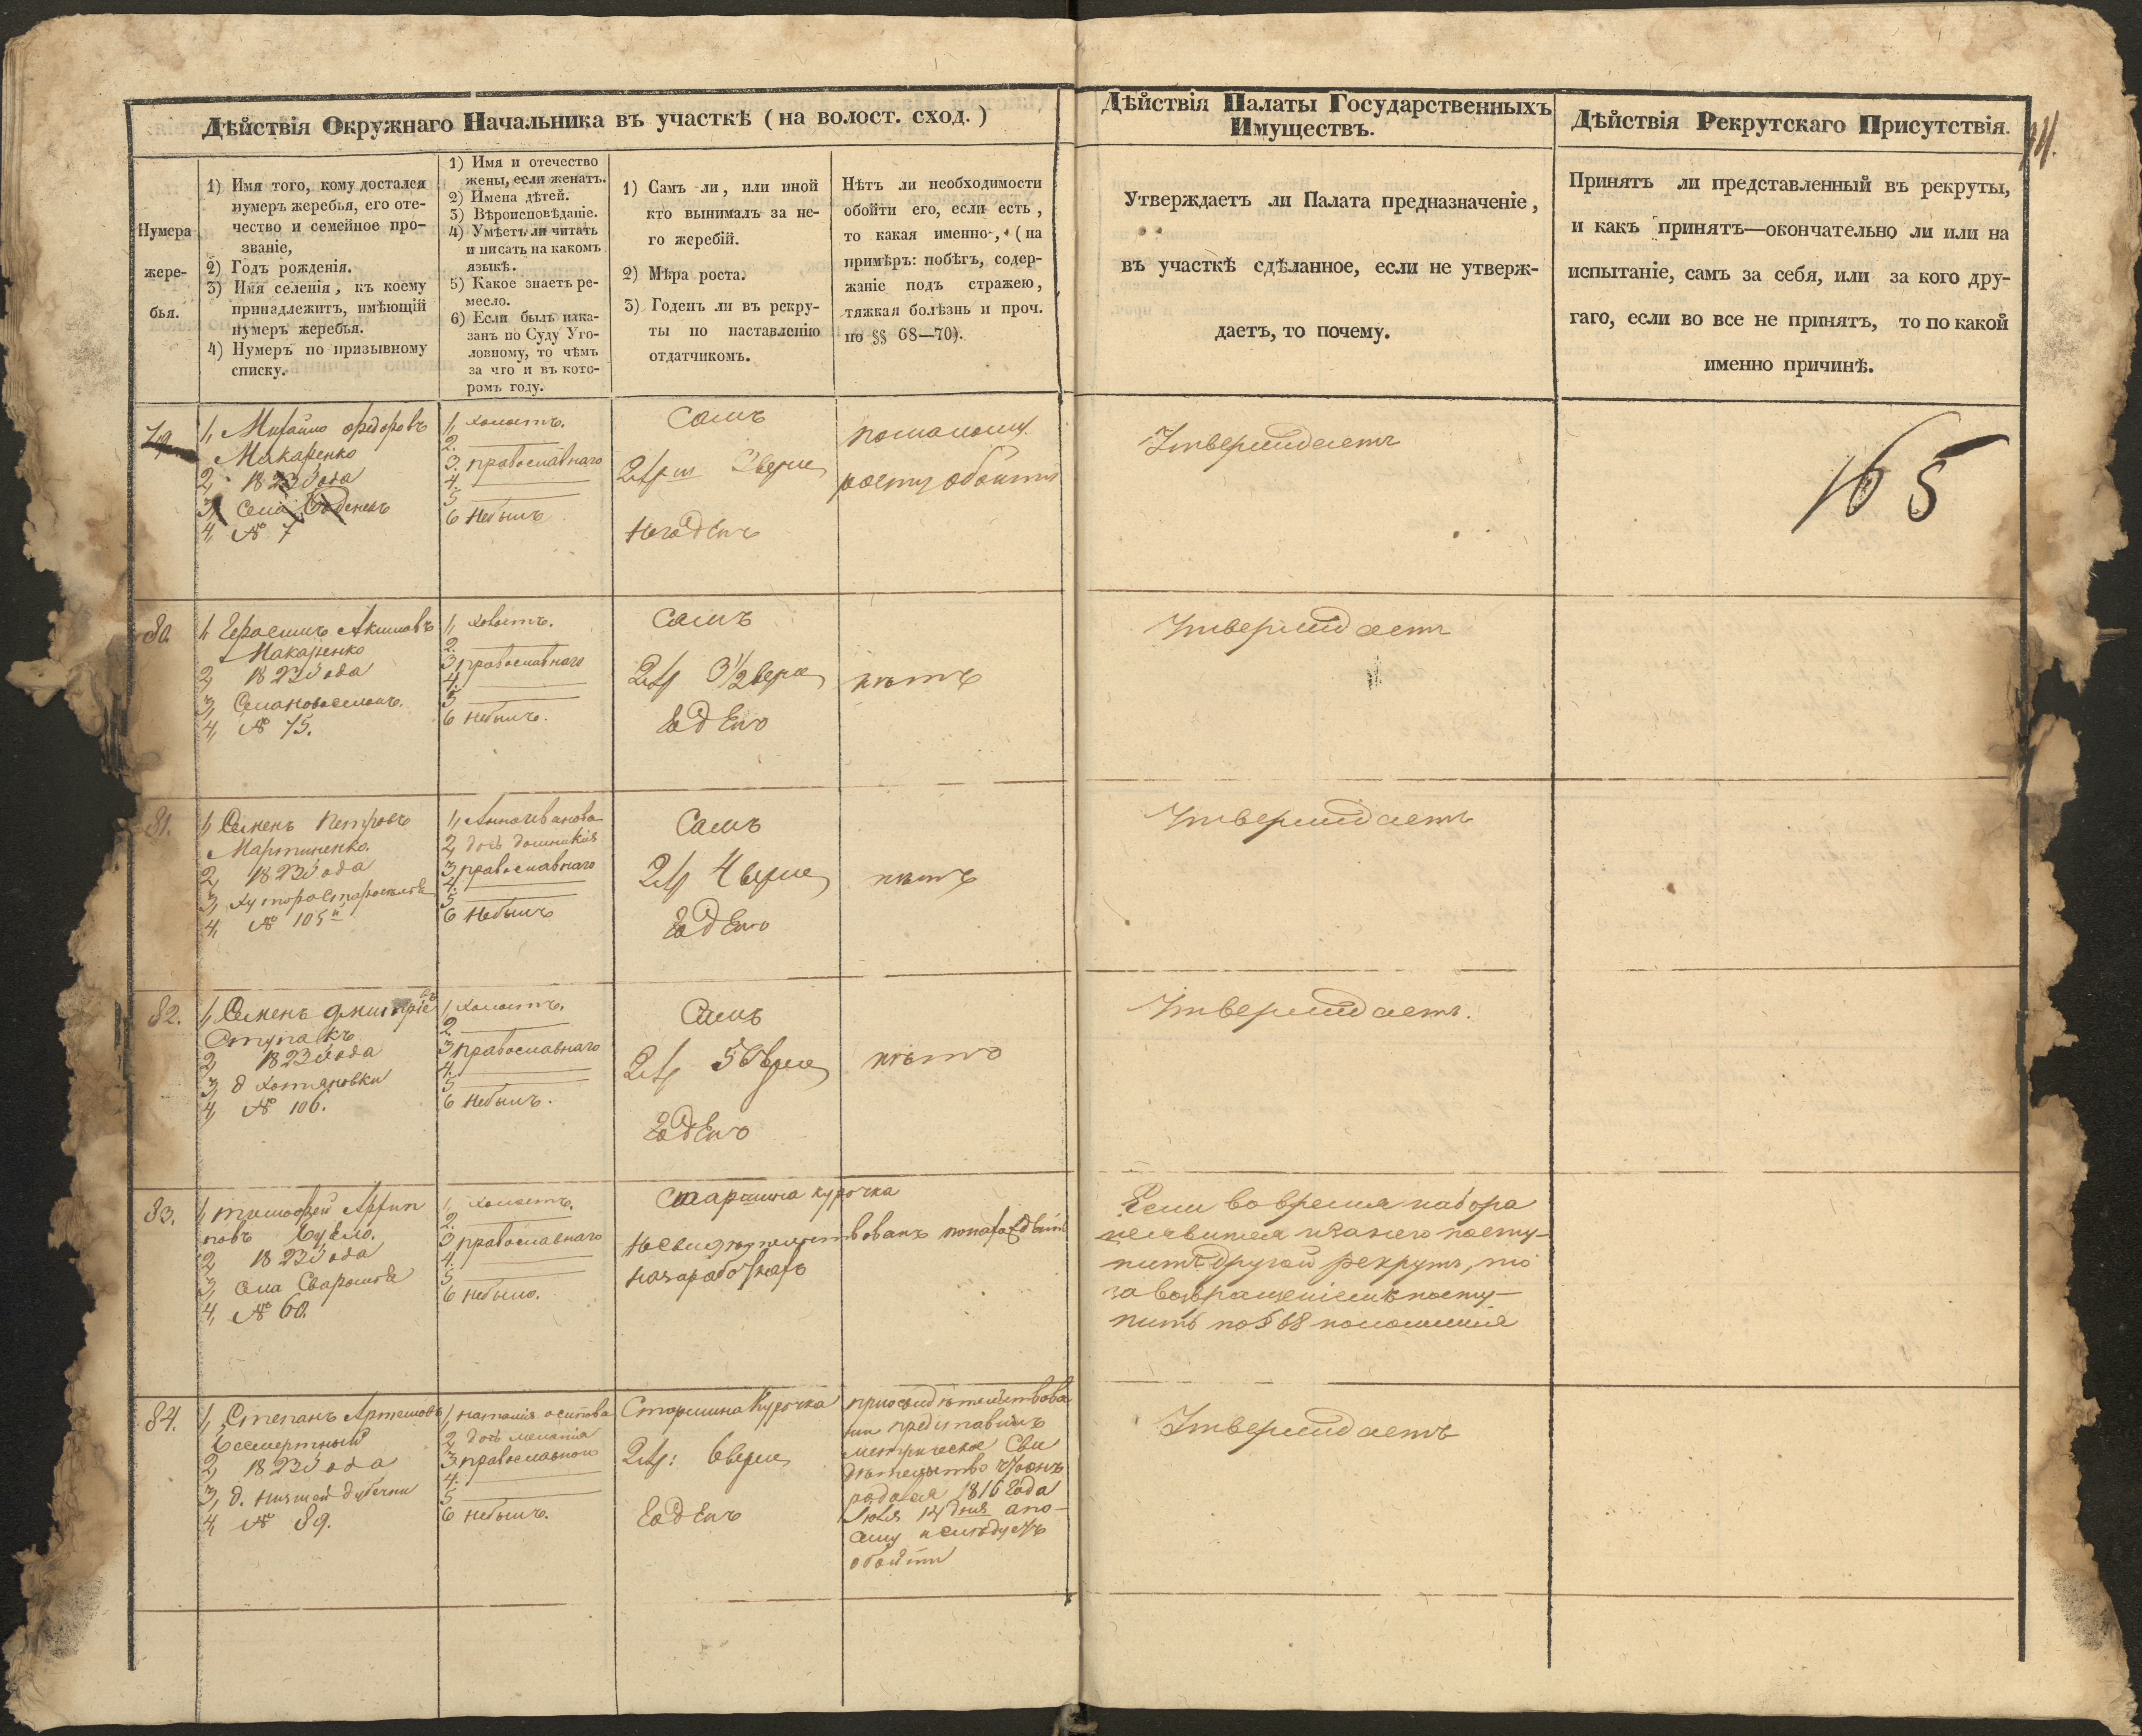 Дѣйствія Окружнаго Начальника въ участкѣ (на волост. сход.)
Дѣйствія Палаты Государственныхъ
Имуществъ.
Дѣйствія Рекрутскаго Присутствія.
Нумера
жере-
бья.
1) Имя того, кому достался
нумеръ жеребья, его оте-
чество и семейное про-
званіе,
2) Годъ рожденія.
3) Имя селенія, къ коему
принадлежитъ, имѣющій
нумеръ жеребья.
4) Нумеръ по призывному
списку.
1) Имя и отечество
жены, если женатъ.
2) Имена дѣтей.
3) Вѣроисповѣданіе.
4) Умѣетъ ли читать
и писать на какомъ
языкѣ.
5) Какое знаетъ ре-
месло.
6) Если былъ нака-
занъ по Суду Уго-
ловному, то чѣмъ
за что и въ кото-
ромъ году.
1) Самъ ли, или иной
кто вынималъ за не-
го жеребій.
2) Мѣра роста.
3) Годенъ ли въ рекру-
ты по наставленію
отдатчикомъ.
Нѣтъ ли необходимости
обойти его, если есть,
то какая именно, (на
примѣръ: побѣгъ, содер-
жаніе подъ стражею,
тяжкая болѣзнь и проч.
по §§ 68—70).
Утверждаетъ ли Палата предназначеніе,
въ участкѣ сдѣланное, если не утверж-
даетъ, то почему.
Принятъ ли представленный въ рекруты,
и какъ принятъ—окончательно ли или на
испытаніе, самъ за себя, или за кого дру-
гаго, если во все не принятъ, то по какой
именно причинѣ.
79
1, Михайло Федоровъ
Макаренко
2, 1823 года
3, Села
4, № 7
1, холостъ.
2.
3. православнаго
4.
5
6 небылъ
Самъ
2 ар ш 2 верш
негоденъ
помалому
росту обойти
Утверждаетъ
165
80.
1, Герасимъ Акимовъ
Макаренко
2, 1823 года
3, Села Новоселокъ.
4, № 75.
1, холостъ.
2.
3 православнаго
4.
5
6 небылъ.
Самъ
2 ар 3 1/2 верш
годенъ
нѣтъ
Утверждаетъ
81.
1, Семенъ Петровъ
Мартиненко.
2, 1823 года
3, хутора
4, № 105й
1, Анна Иванова
2, дочь Домникія
3, православнаго
4.
5
6 небылъ
Самъ
2 ар 4 верш
годенъ
нѣтъ
Утверждаетъ
82.
1, Семенъ Дмитріе
въ
Ступакъ
2, 1823 года
3, д Хотяновки
4, № 106.
1, холостъ.
2.
3 православнаго
4.
5
6 небылъ.
Самъ
2 ар 5 верш
годенъ
нѣтъ
Утверждаетъ.
83.
1, Тимофей Архип
повъ
2, 1823 года
3, Села Сваромья
4, № 60.
1, холостъ.
2.
3 православнаго
4.
5
6 небылъ.
Старшина Курочка
несвидѣтельствованъ понахожденію
назаработкахъ
Если во время набора
неявится и занего посту-
питъ другой рекрутъ, то
за возвращеніемъ посту-
пить по § 68 положенія
84.
1, Степанъ Артемовъ
Безсмертный
2, 1823 года
3, д. нижшей дубечни
4, № 89.
1, наталія осипова
2, дочь меланія
3 православнаго
4.
5
6 небылъ.
Старшина Курочка
2 ар: 6 верш
Годенъ
приосвидѣтельствова
ніи представилъ
метрическое Сви
дѣтельство чтоонъ
родился 1816 года
Іюля 14 дня апо-
сему
обойти
Утверждаетъ